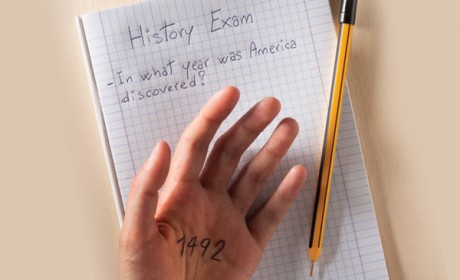 History Exam
- In what year was America
discovered?
1492